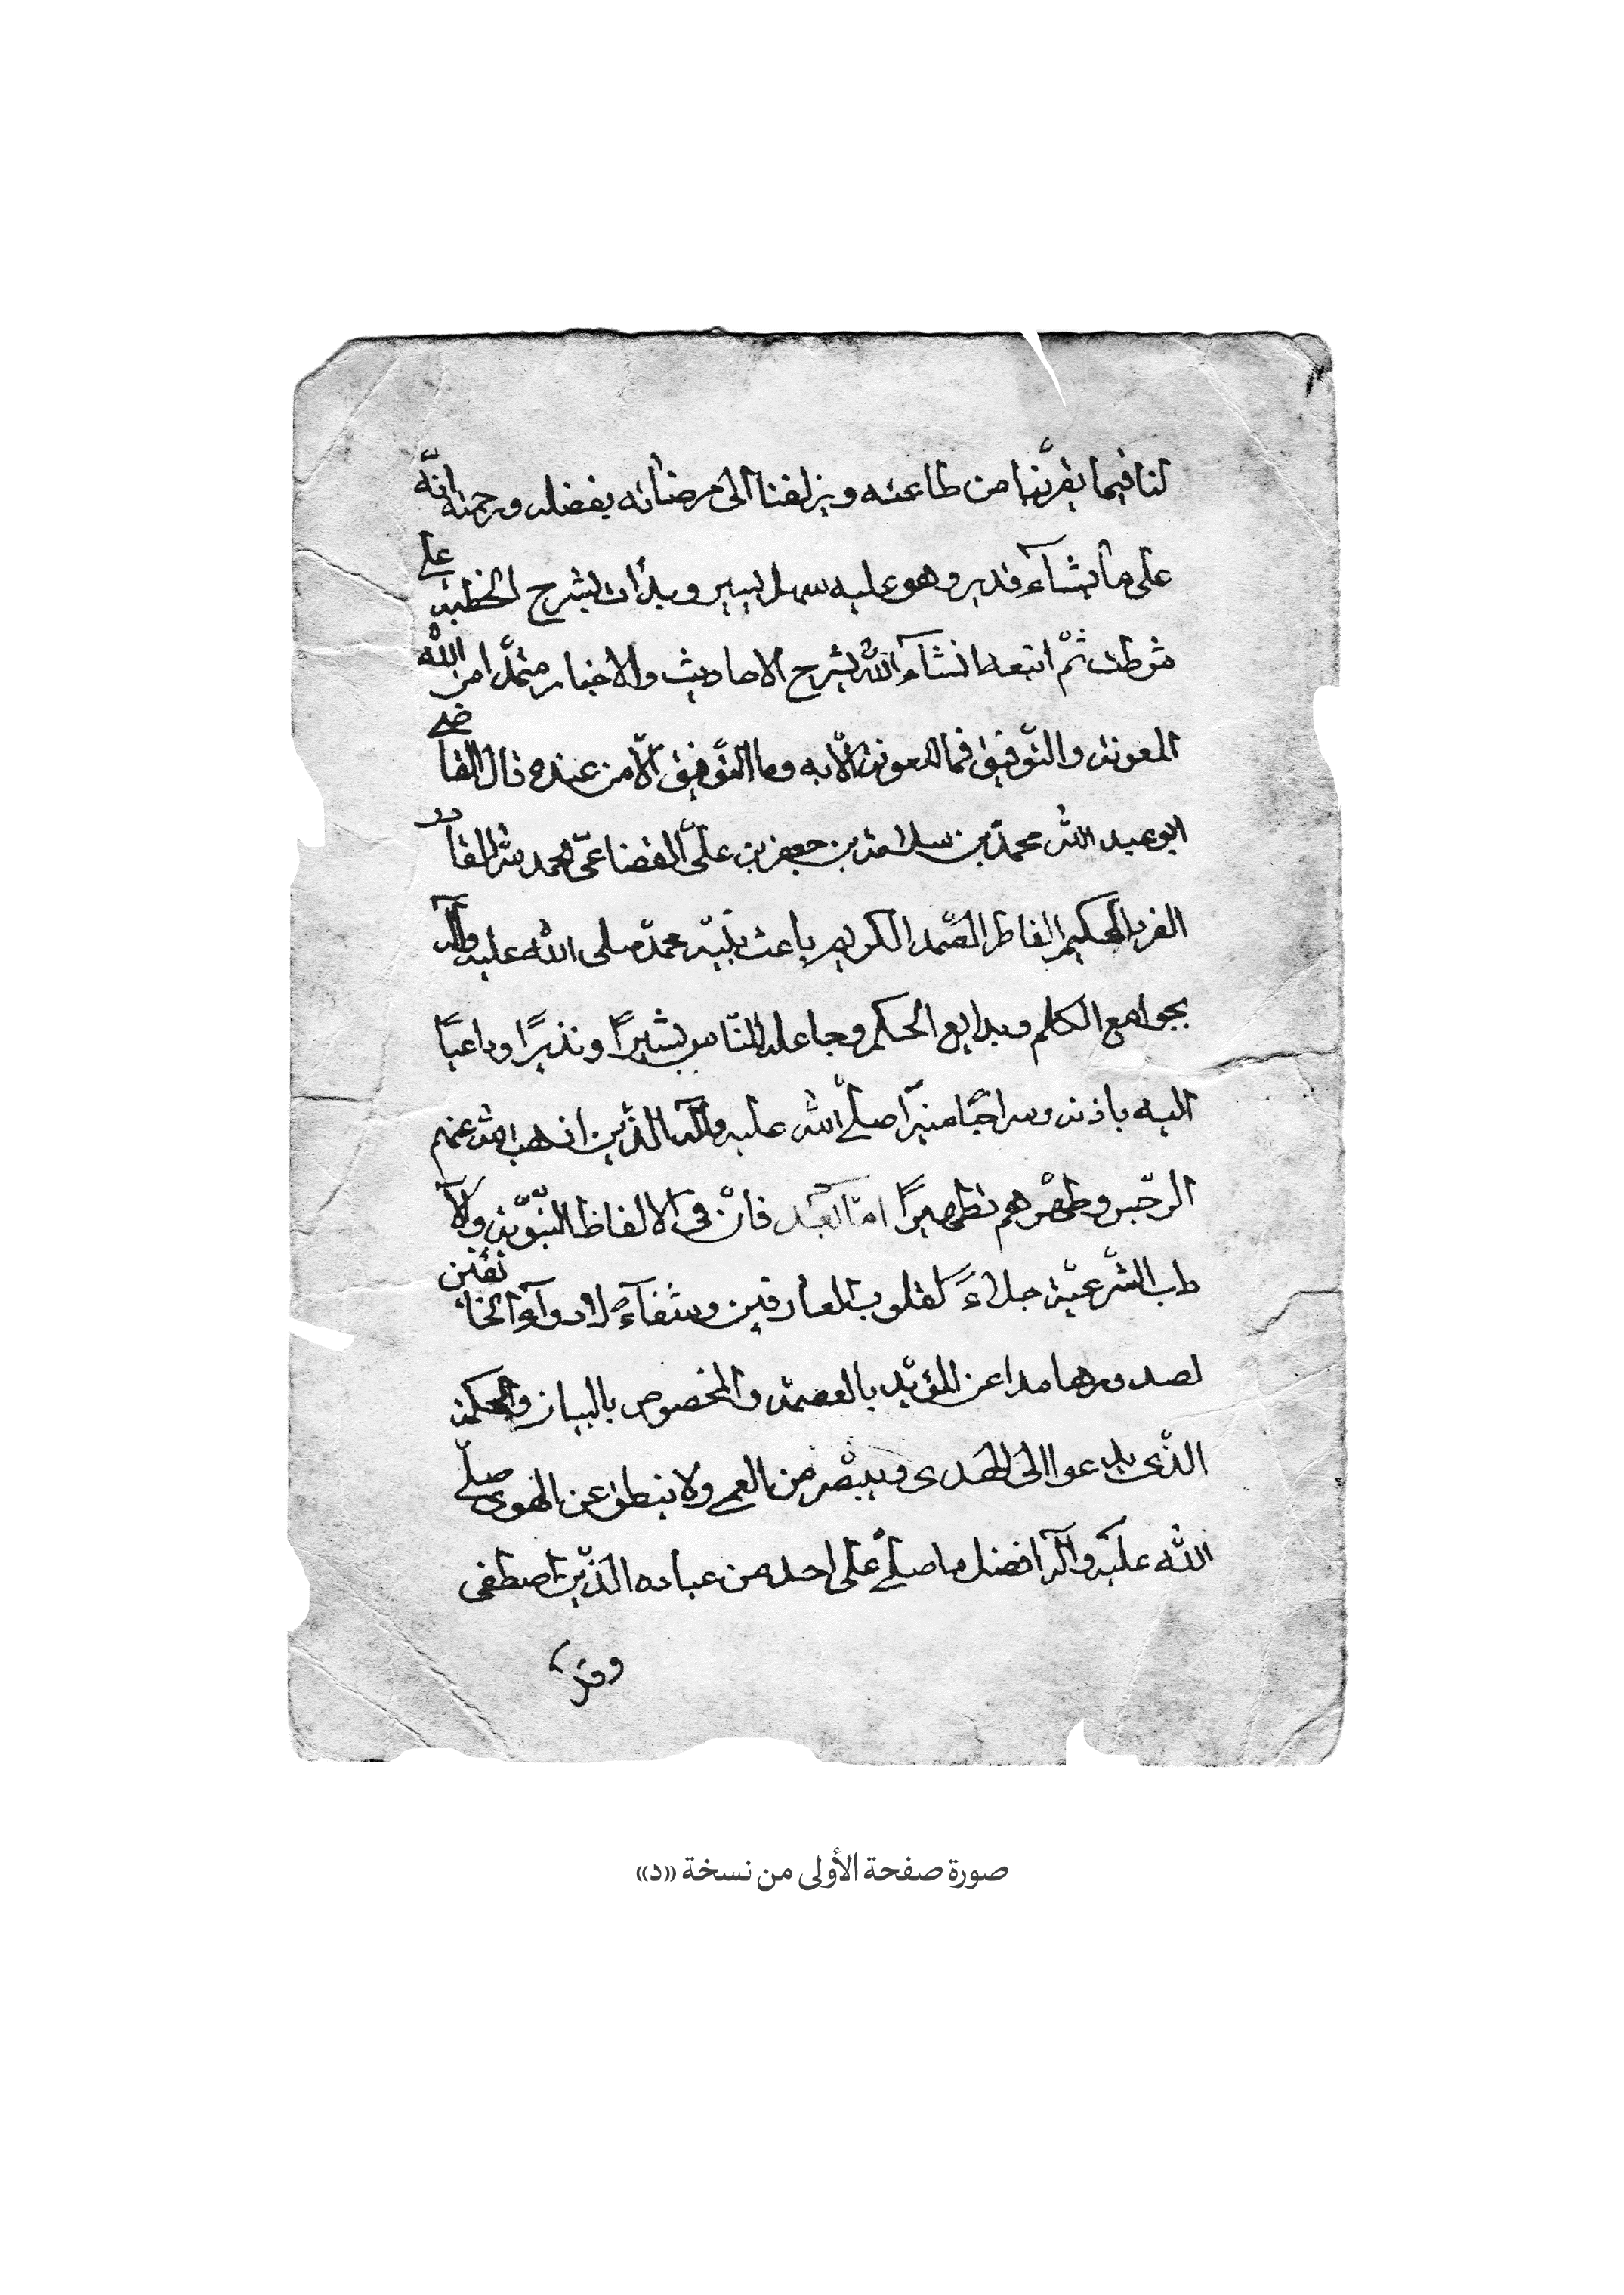 لنا فيما يقربنا من طاعته ويزلفنا الى مرضاته بفضله ورحمته انّه
على ما يشآء قدير وهو عليه سهل يسير وبدأت بشرح الخطبة على
شرطت ثمّ اتبعه انشآء اللّه بشرح الاحاديث والاخبار متمدّا من اللّه
المعونة والتّوفيق فما المعونة الّا به وما التّوفيق الّا من عنده قال القاضى
ابو عبد اللّه محمّد بن سلامة بن جعفر بن علىّ القضاعىّ الحمد للّه القادر
الفرد الحكيم الفاطر الصّمد الكريم باعث نبيّه محمّد صلى اللّه عليه وآله
بجوامع الكلم وبدايع الحكم وجاعله للنّاس بشيرًا ونذيرًا وداعيًا
اليه باذنه وسراجًا منيرًا صلّى اللّه عليه وآله الّذين اذهب اللّه عنهم
الرّجس وطهّرهم تطهيرًا امّا بعد فانّ فى الالفاظ النّبوّية والآ
داب الشّرعيّة جلاءً لقلوب العارفين وشفآءً لادوآء الخائفين
لصدورها عن المؤيّد بالعصمة والمخصوص بالبيان والحكمة
الّذى يدعوا الى الهدى ويبصّر من العمى ولا ينطق عن الهوى صلّى
اللّه عليه وآله افضل ما صلّى على احد من عباده الّذين اصطفى
صورة صفحة الأولى من نسخة «د»